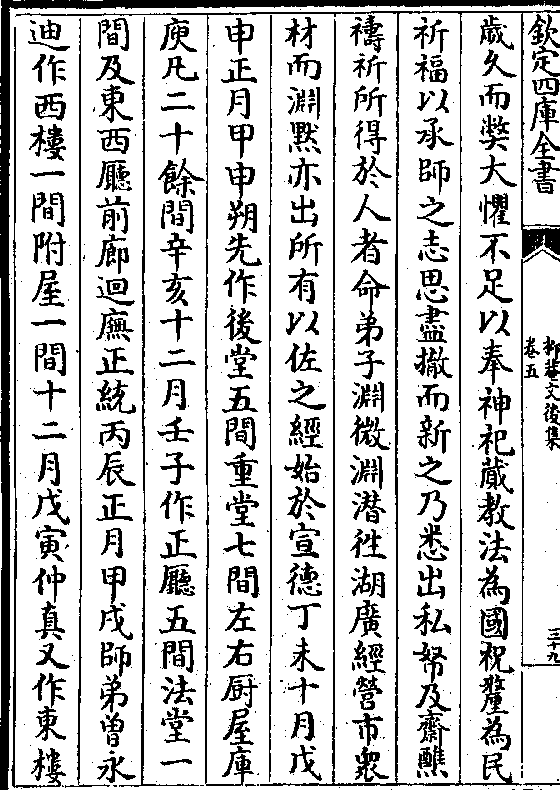 欽定四庫全書
抑菴文後集
卷五
三十九
歲久而弊大懼不足以奉神祀蕆教法為國祝釐為民
祈福以承師之志思盡撤而新之乃悉出私帑及齋醮
禱祈所得於人者命弟子淵微淵潛徃湖廣經營市衆
材而淵默亦出所有以佐之經始於宣德丁未十月戊
申正月甲申朔先作後堂五間重堂七間左右厨屋庫
庾凡二十餘間辛亥十二月壬子作正廳五間法堂一
間及東西廳前廊迴廡正統丙辰正月甲戌師弟曾永
迪作西樓一間附屋一間十二月戊寅仲真又作東樓